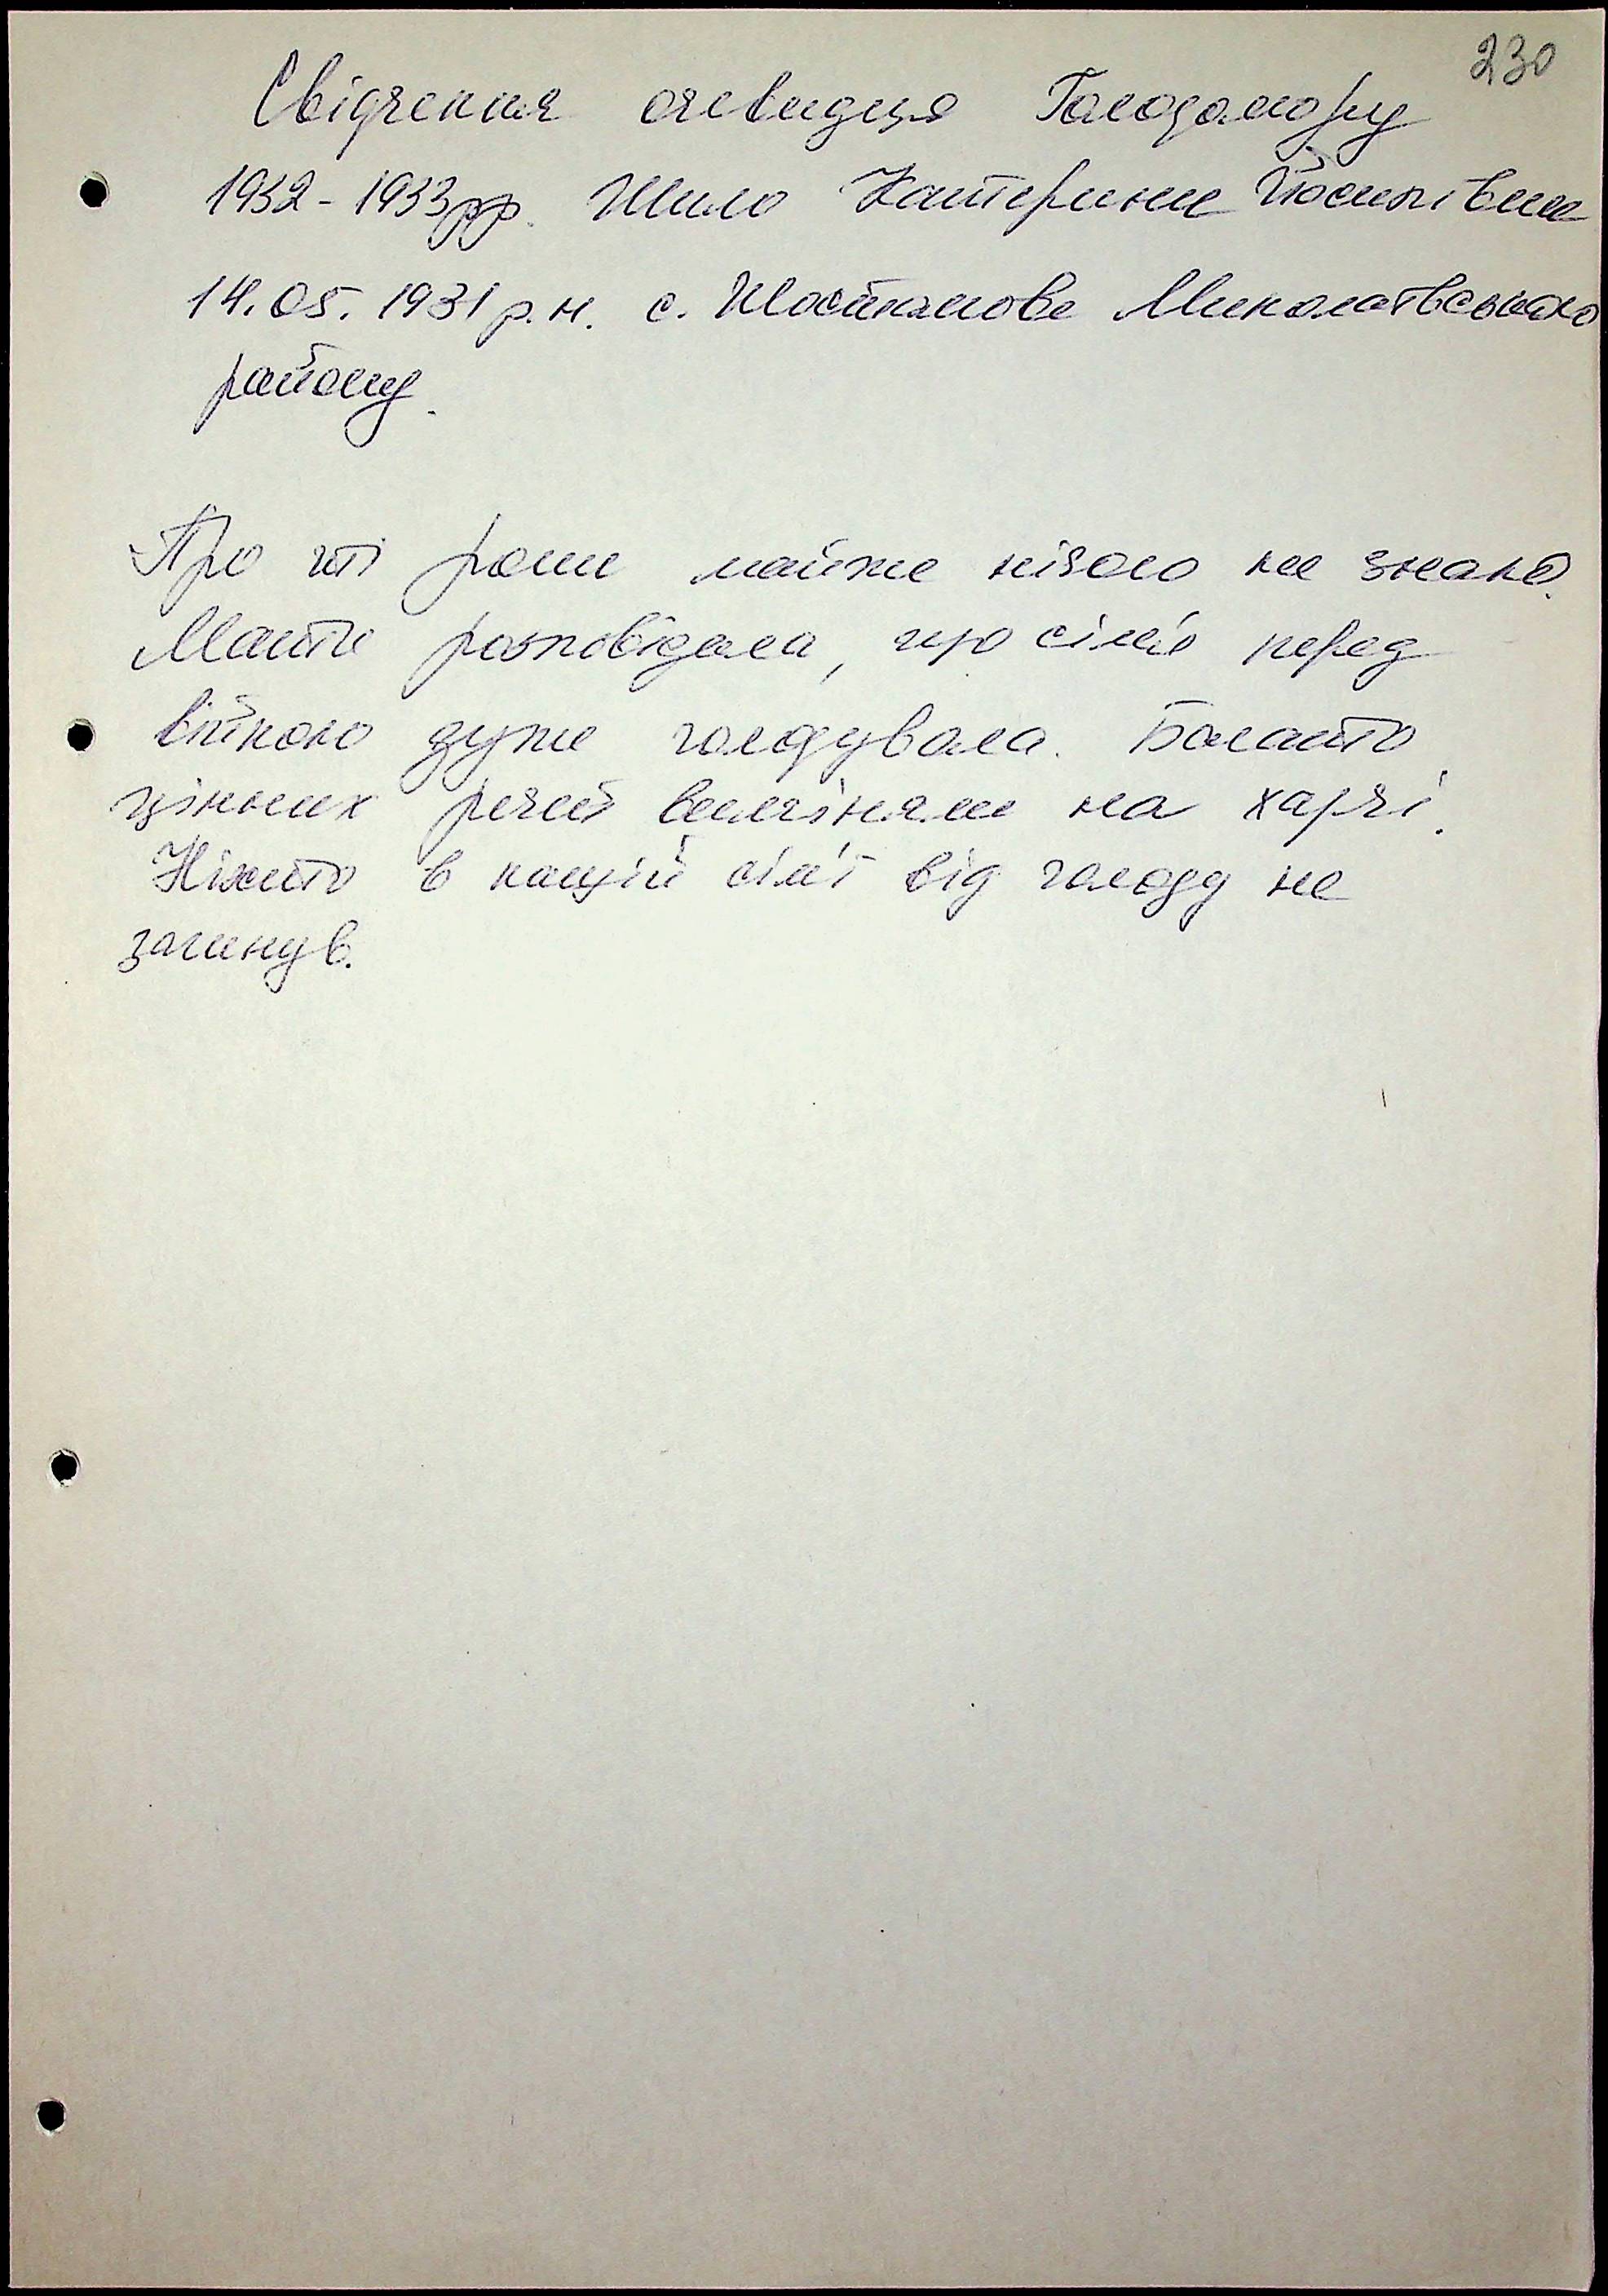 230
Свідчення очевидця Голодомору
1932-1933рр. Шило Катерини Йосипівни
14.05.1931 р.н. с. Миколаївського
району.
Про ті роки майже нічого не знаю.
Мати розповідала, що сім'я перед
війною дуже голодувала. Багато
цінних речей виміняли на харчі.
Ніхто в нашій сім'ї від голоду не
загинув.